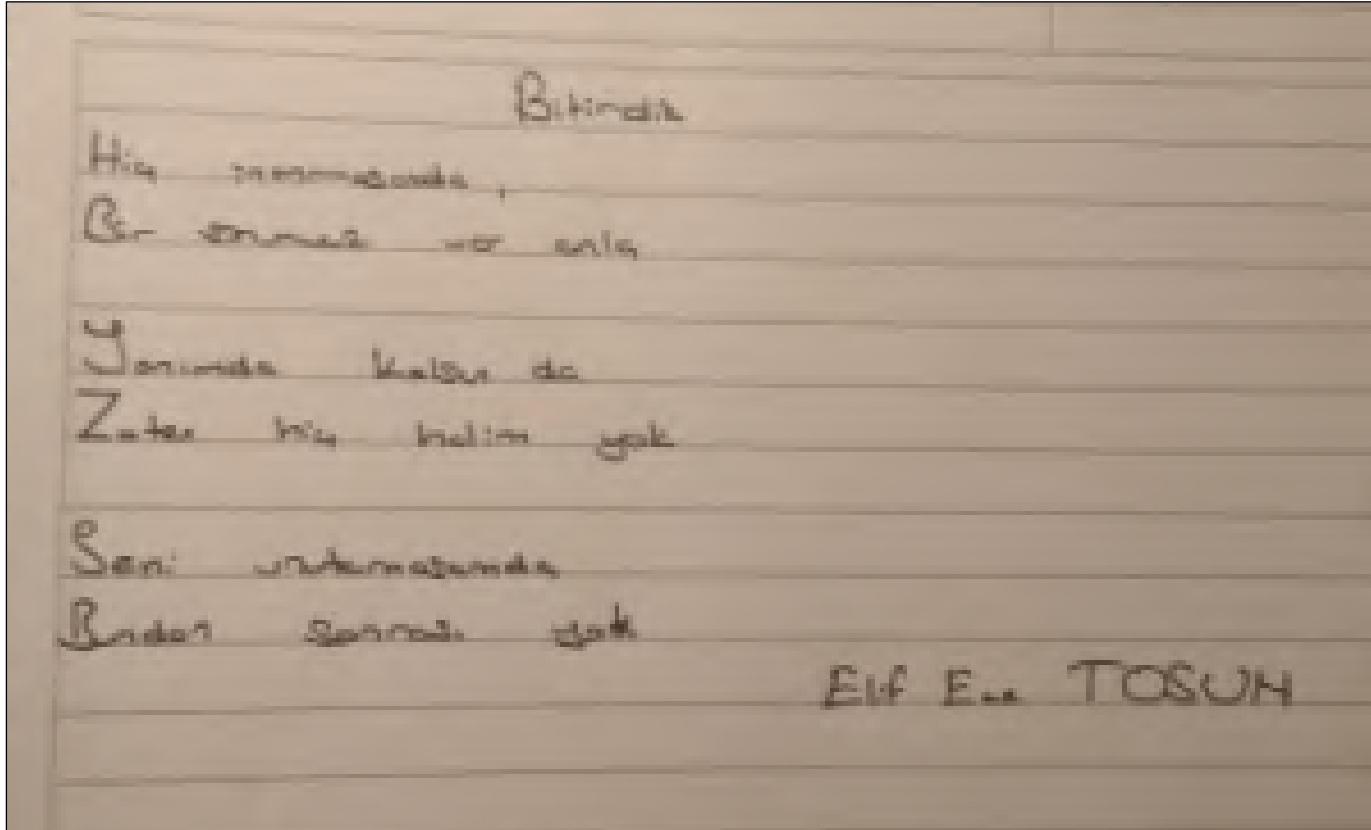 Bitirdik
Hiç inanmasanda,
Bir sonumuz var anla
Yarımda kalsın da
Zaten hiç halim yok
Seni unutamasamda
Bundan sonrası yok
Elif TOSUN